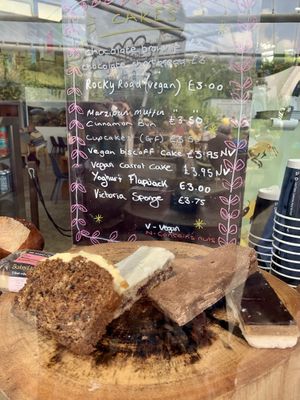 CAKES
chocolate brownie
chocolate shortbread £3
Rocky Road (vegan) £3.00
Marzipan muffin "
Cinnamon bun £3.50
Cupcake (GF) £3.5
Vegan biscoff cake £3.95 NV
Vegan carrot cake £3.95 NV
Yoghurt Flapjack £3.00
Victoria Sponge £3.75
V - Vegan
N - contains nuts